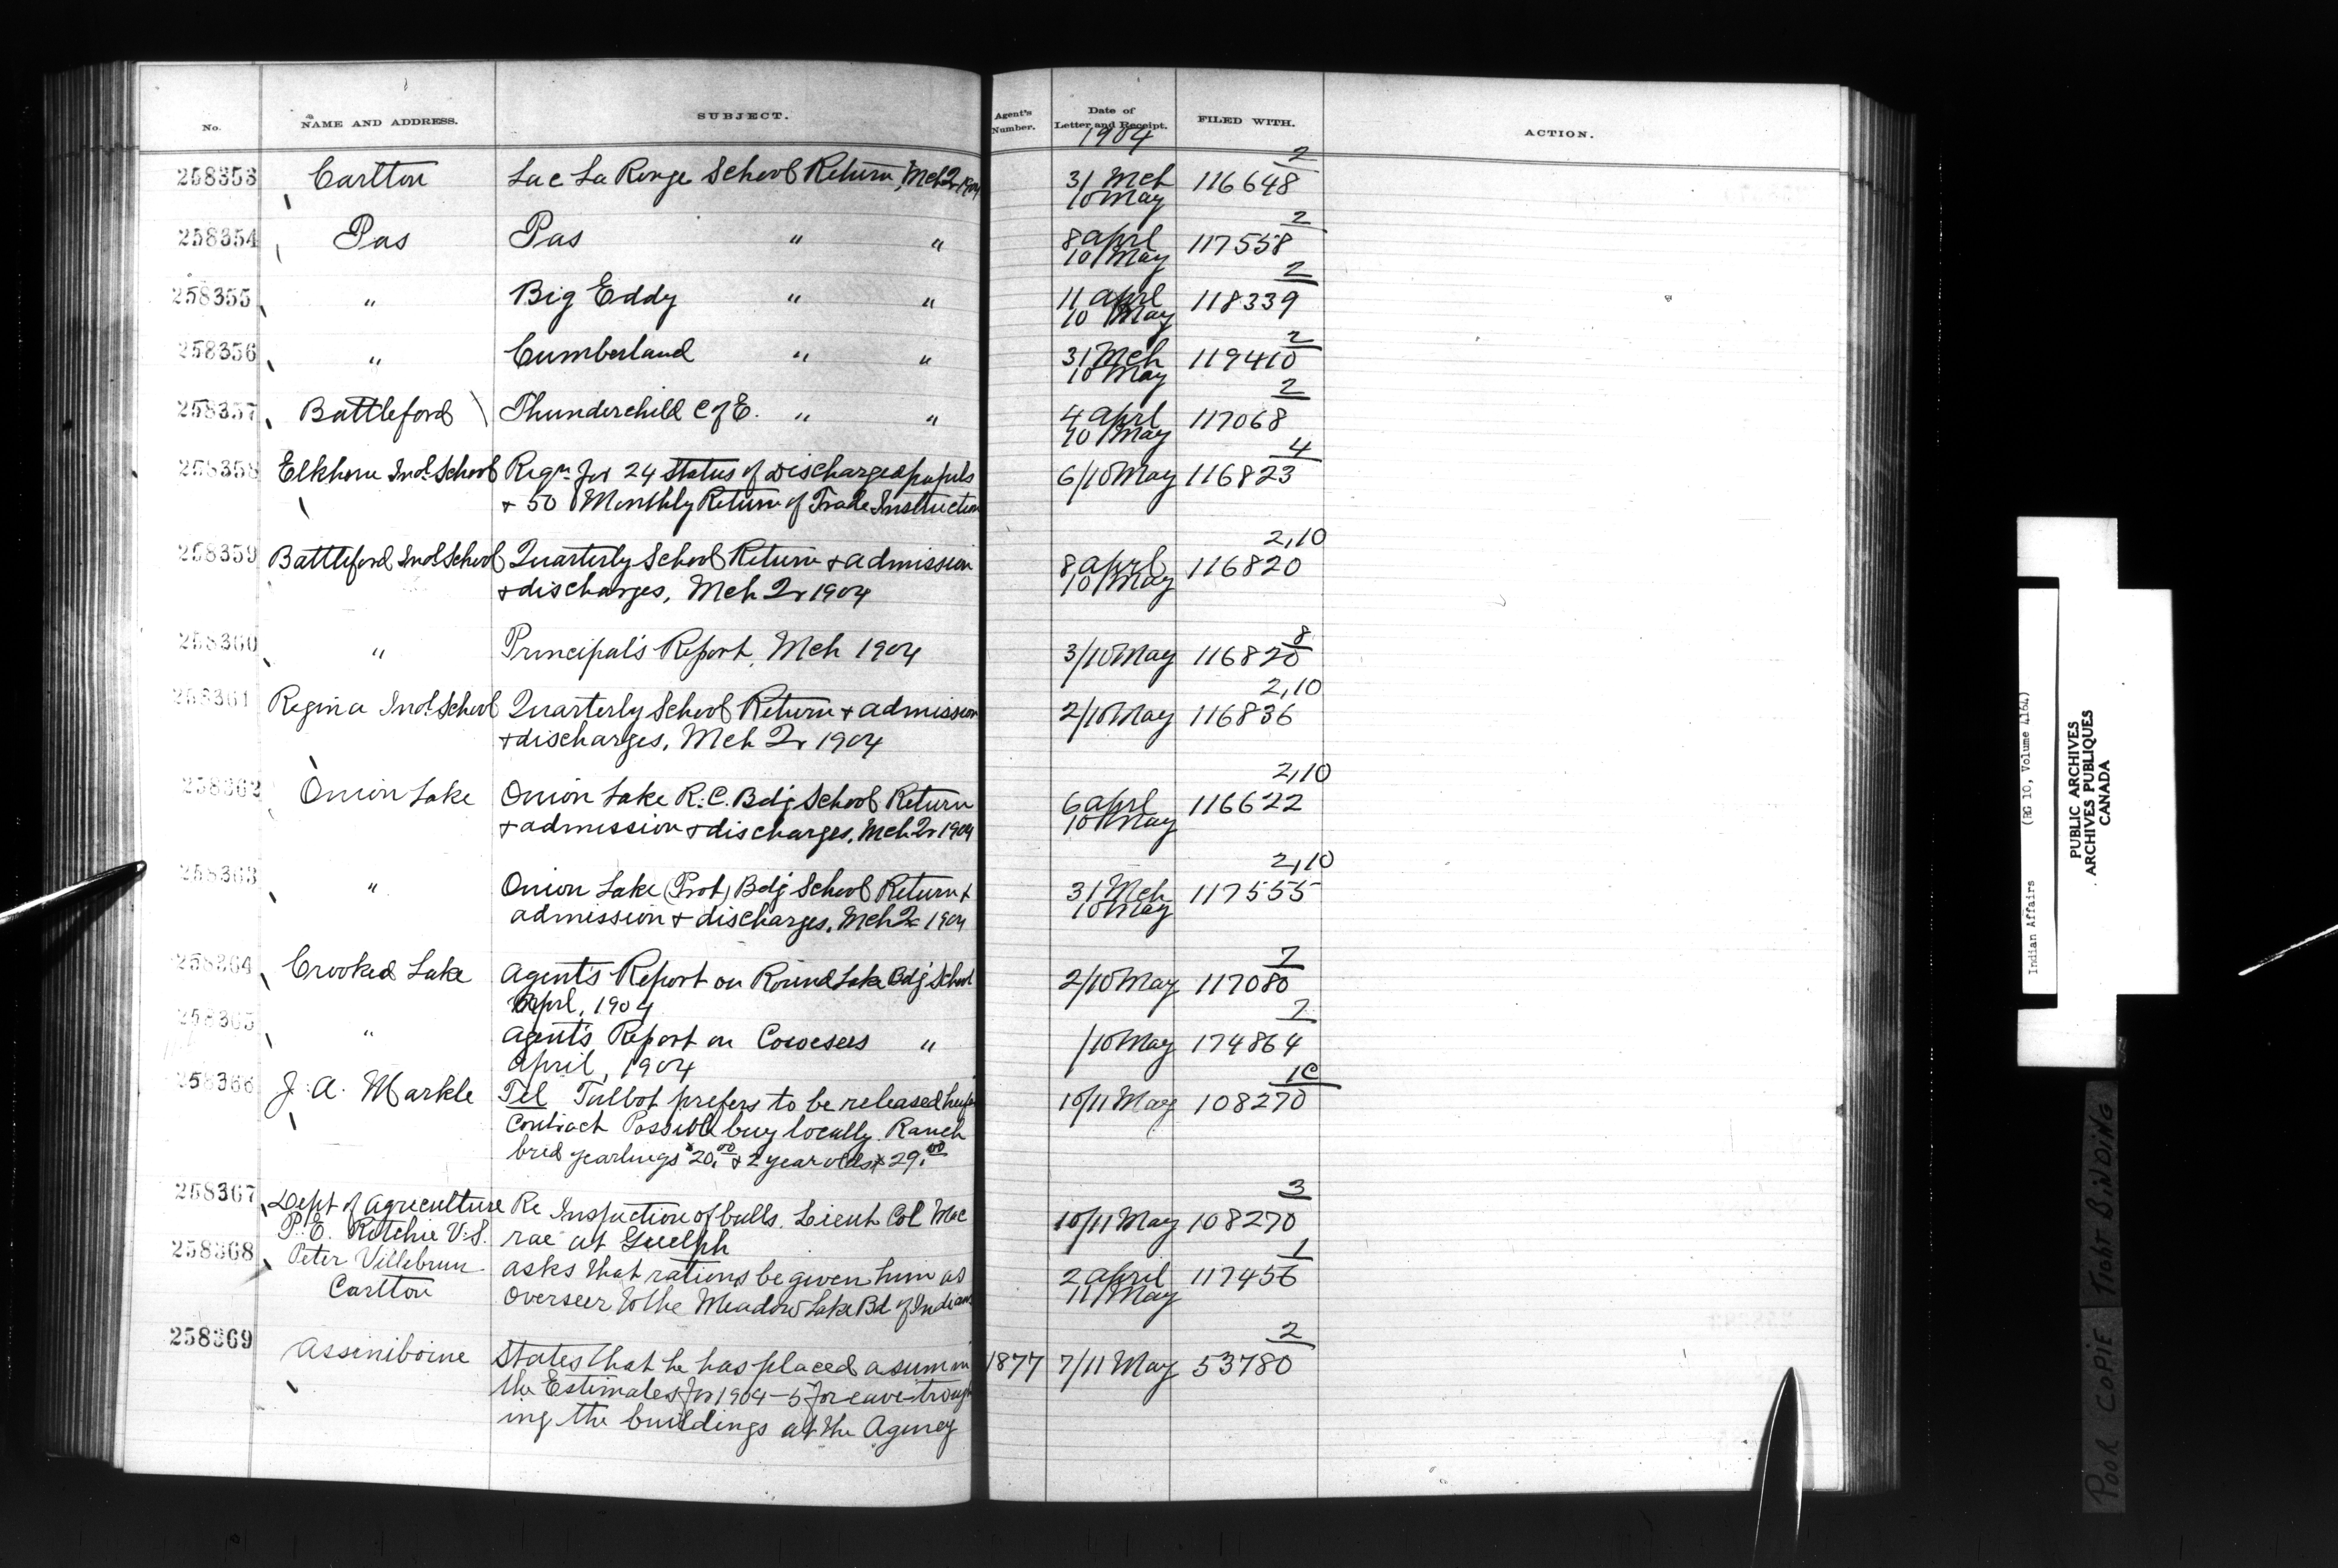 No. NAME AND ADDRESS. SUBJECT. Agent's Number. Date of Letter and Receipt. FILED WITH. ACTION.
1904
2
258353 Carlton Lac La Ronge School Return, Mch Qr 1904 31 Mch 116648
10 May
2
258354 Pas Pas " " 8 april 117558
10 May
2
258355 " Big Eddy " " 11 aprl 118339
10 May
2
258356 " Cumberland " " 31 Mch 119410
10 May
2
258357 Battleford Thunderchild C of E. " " 4 aprl 117068
10 May
4
258358 Elkhorn Indl School Reqn for 24 Status of Discharged pupils 6/10 May 116823
+ 50 Monthly Return of Trade Instruction
2,10
258359 Battleford Indl School Quarterly School Return + admission 8 aprl 116820
+ discharges, Mch Qr 1904 10 May
8
258360 " Principal's Report, Mch 1904 3/10 May 116820
2,10
258361 Regina Indl School Quarterly School Return + admission 2/10 May 116836
+ discharges, Mch Qr 1904
2,10
258362 Onion Lake Onion Lake R.C. Bdg School Return 6 aprl 116622
+ admission + discharges, Mch Qr 1904 10 May
2,10
258363 " Onion Lake (Prot) Bdg School Return + 31 Mch 117555
admission + discharges, Mch Qr 1904 10 May
7
258364 Crooked Lake Agent's Report on Round Lake Bdg School 2/10 May 117080
Aprl, 1904
7
258365 " Agent's Report on Cowesess " /10 May 174864
April, 1904
1C
258366 J. A. Markle Tel Talbot prefers to be released 10/11 May 108270
contract Possible buy locally Ranch
bred yearlings $20.00 + 2 year olds $29.00
3
258367 Dept of Agriculture Re Inspection of bulls. Lieut Col Mac 10/11 May 108270
P. E. Ritchie V.S. rae at Guelph
1
258368 Peter Villebrun asks that rations be given him as 2 april 117456
Carlton Overseer to the Meadow Lake Bd of Indians 11 May
2
258369 Assiniboine States that he has placed a sum in 1877 7/11 May 53780
the Estimates for 1904-5 for eave-trough
ing the buildings at the Agency
Indian Affairs (RG 10, Volume 4164)
PUBLIC ARCHIVES
ARCHIVES PUBLIQUES
CANADA
POOR COPIE TIGHT BINDING